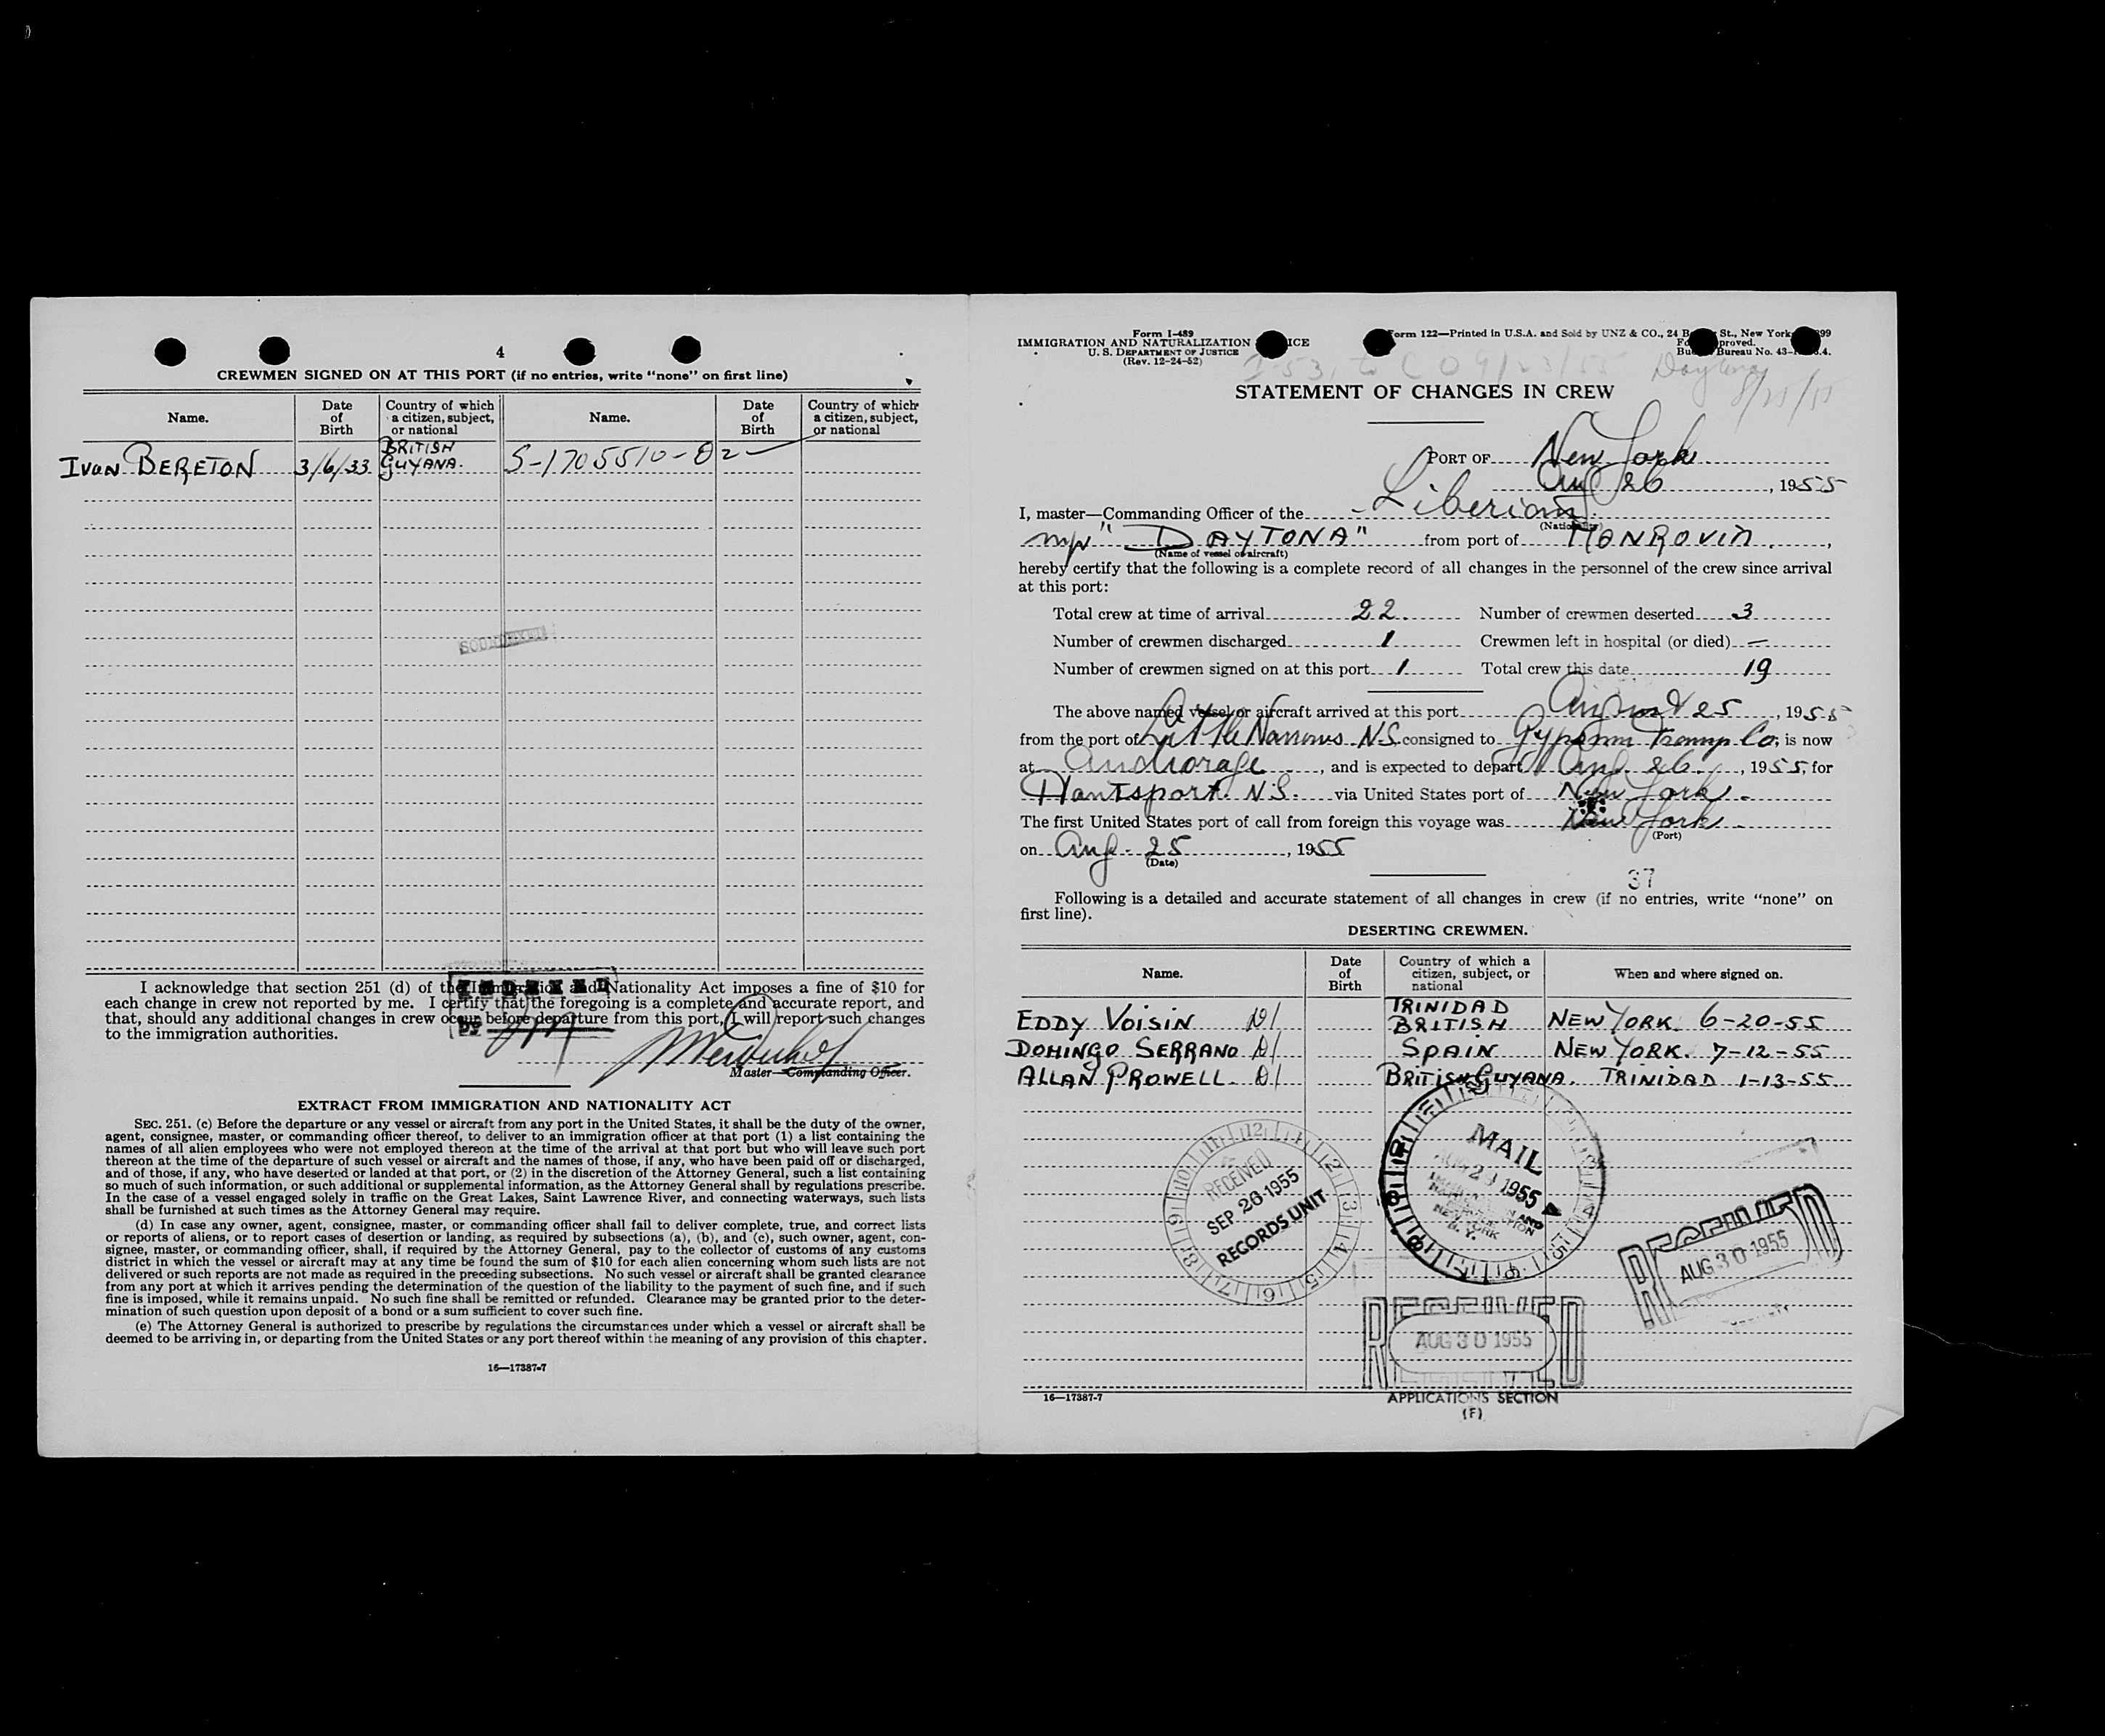 4
CREWMEN SIGNED ON AT THIS PORT (if no entries, write "none" on first line)
Name. Date of Birth Country of which a citizen, subject, or national Name. Date of Birth Country of which a citizen, subject, or national
Ivan BERETON 3/6/33 BRITISH GUYANA. S-1705510-02
I acknowledge that section 251 (d) of the Immigration and Nationality Act imposes a fine of $10 for
each change in crew not reported by me. I certify that the foregoing is a complete and accurate report, and
that, should any additional changes in crew occur before departure from this port, I will report such changes
to the immigration authorities.
INDEXED
by
Master—Commanding Officer.
EXTRACT FROM IMMIGRATION AND NATIONALITY ACT
SEC. 251. (c) Before the departure or any vessel or aircraft from any port in the United States, it shall be the duty of the owner,
agent, consignee, master, or commanding officer thereof, to deliver to an immigration officer at that port (1) a list containing the
names of all alien employees who were not employed thereon at the time of the arrival at that port but who will leave such port
thereon at the time of the departure of such vessel or aircraft and the names of those, if any, who have been paid off or discharged,
and of those, if any, who have deserted or landed at that port, or (2) in the discretion of the Attorney General, such a list containing
so much of such information, or such additional or supplemental information, as the Attorney General shall by regulations prescribe.
In the case of a vessel engaged solely in traffic on the Great Lakes, Saint Lawrence River, and connecting waterways, such lists
shall be furnished at such times as the Attorney General may require.
(d) In case any owner, agent, consignee, master, or commanding officer shall fail to deliver complete, true, and correct lists
or reports of aliens, or to report cases of desertion or landing, as required by subsections (a), (b), and (c), such owner, agent, con-
signee, master, or commanding officer, shall, if required by the Attorney General, pay to the collector of customs of any customs
district in which the vessel or aircraft may at any time be found the sum of $10 for each alien concerning whom such lists are not
delivered or such reports are not made as required in the preceding subsections. No such vessel or aircraft shall be granted clearance
from any port at which it arrives pending the determination of the question of the liability to the payment of such fine, and if such
fine is imposed, while it remains unpaid. No such fine shall be remitted or refunded. Clearance may be granted prior to the deter-
mination of such question upon deposit of a bond or a sum sufficient to cover such fine.
(e) The Attorney General is authorized to prescribe by regulations the circumstances under which a vessel or aircraft shall be
deemed to be arriving in, or departing from the United States or any port thereof within the meaning of any provision of this chapter.
16—17387-7
Form I-489
IMMIGRATION AND NATURALIZATION
U. S. DEPARTMENT OF JUSTICE
(Rev. 12-24-52)
Form 122—Printed in U.S.A. and Sold by UNZ & CO., 24 St., New York
Bureau No. 43-
Daytona
STATEMENT OF CHANGES IN CREW
PORT OF New York
Aug 26, 1955
I, master—Commanding Officer of the Liberian
(Nationality)
"DAYTONA" from port of MONROVIA,
(Name of vessel or aircraft)
hereby certify that the following is a complete record of all changes in the personnel of the crew since arrival
at this port:
Total crew at time of arrival 22. Number of crewmen deserted 3
Number of crewmen discharged 1 Crewmen left in hospital (or died) —
Number of crewmen signed on at this port 1 Total crew this date 19
The above named vessel or aircraft arrived at this port August 25, 1955
from the port of Little Narrows N.S. consigned to Gypsum Tramp Co, is now
at Anchorage, and is expected to depart Aug. 26, 1955, for
Hantsport. N.S. via United States port of New York.
The first United States port of call from foreign this voyage was New York
(Port)
on Aug. 25, 1955
(Date)
37
Following is a detailed and accurate statement of all changes in crew (if no entries, write "none" on
first line).
DESERTING CREWMEN.
Name. Date of Birth Country of which a citizen, subject, or national When and where signed on.
EDDY VOISIN D1 TRINIDAD BRITISH NEW YORK. 6-20-55
DOMINGO SERRANO D1 SPAIN NEW YORK. 7-12-55
ALLAN PROWELL D1 BRITISH GUYANA. TRINIDAD 1-13-55
RECEIVED
SEP 26 1955
RECORDS UNIT
MAIL
1955
NEW YORK
N. Y.
RECEIVED
AUG 30 1955
RECEIVED
AUG 30 1955
16—17387-7
APPLICATIONS SECTION
(F)